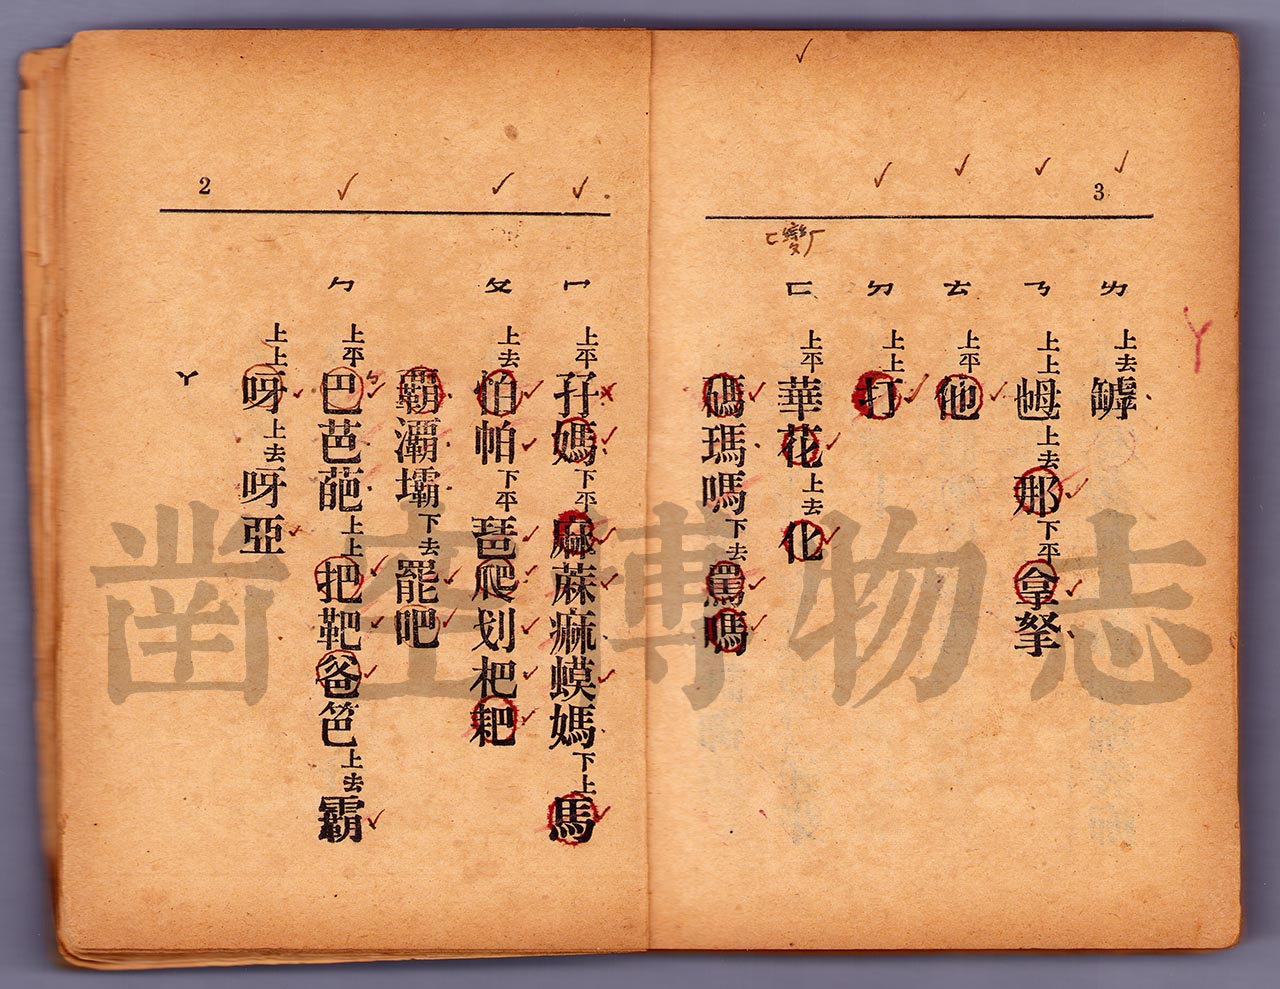 2
ㄚ
上上呀上去呀亞
ㄅ上平巴芭葩上上把靶爸笆上去霸
覇灞壩下去罷吧
ㄆ上去怕帕下平琶爬划杷耙
ㄇ上平孖媽下平麻蔴痲蟆媽下上馬
3
碼瑪嗎下去罵嗎
變
ㄈ上平華花上去化
ㄉ上上打
ㄊ上平他
ㄋ上上乸上去那下平拿拏
ㄌ上去罅
ㄚ
凿空博物志